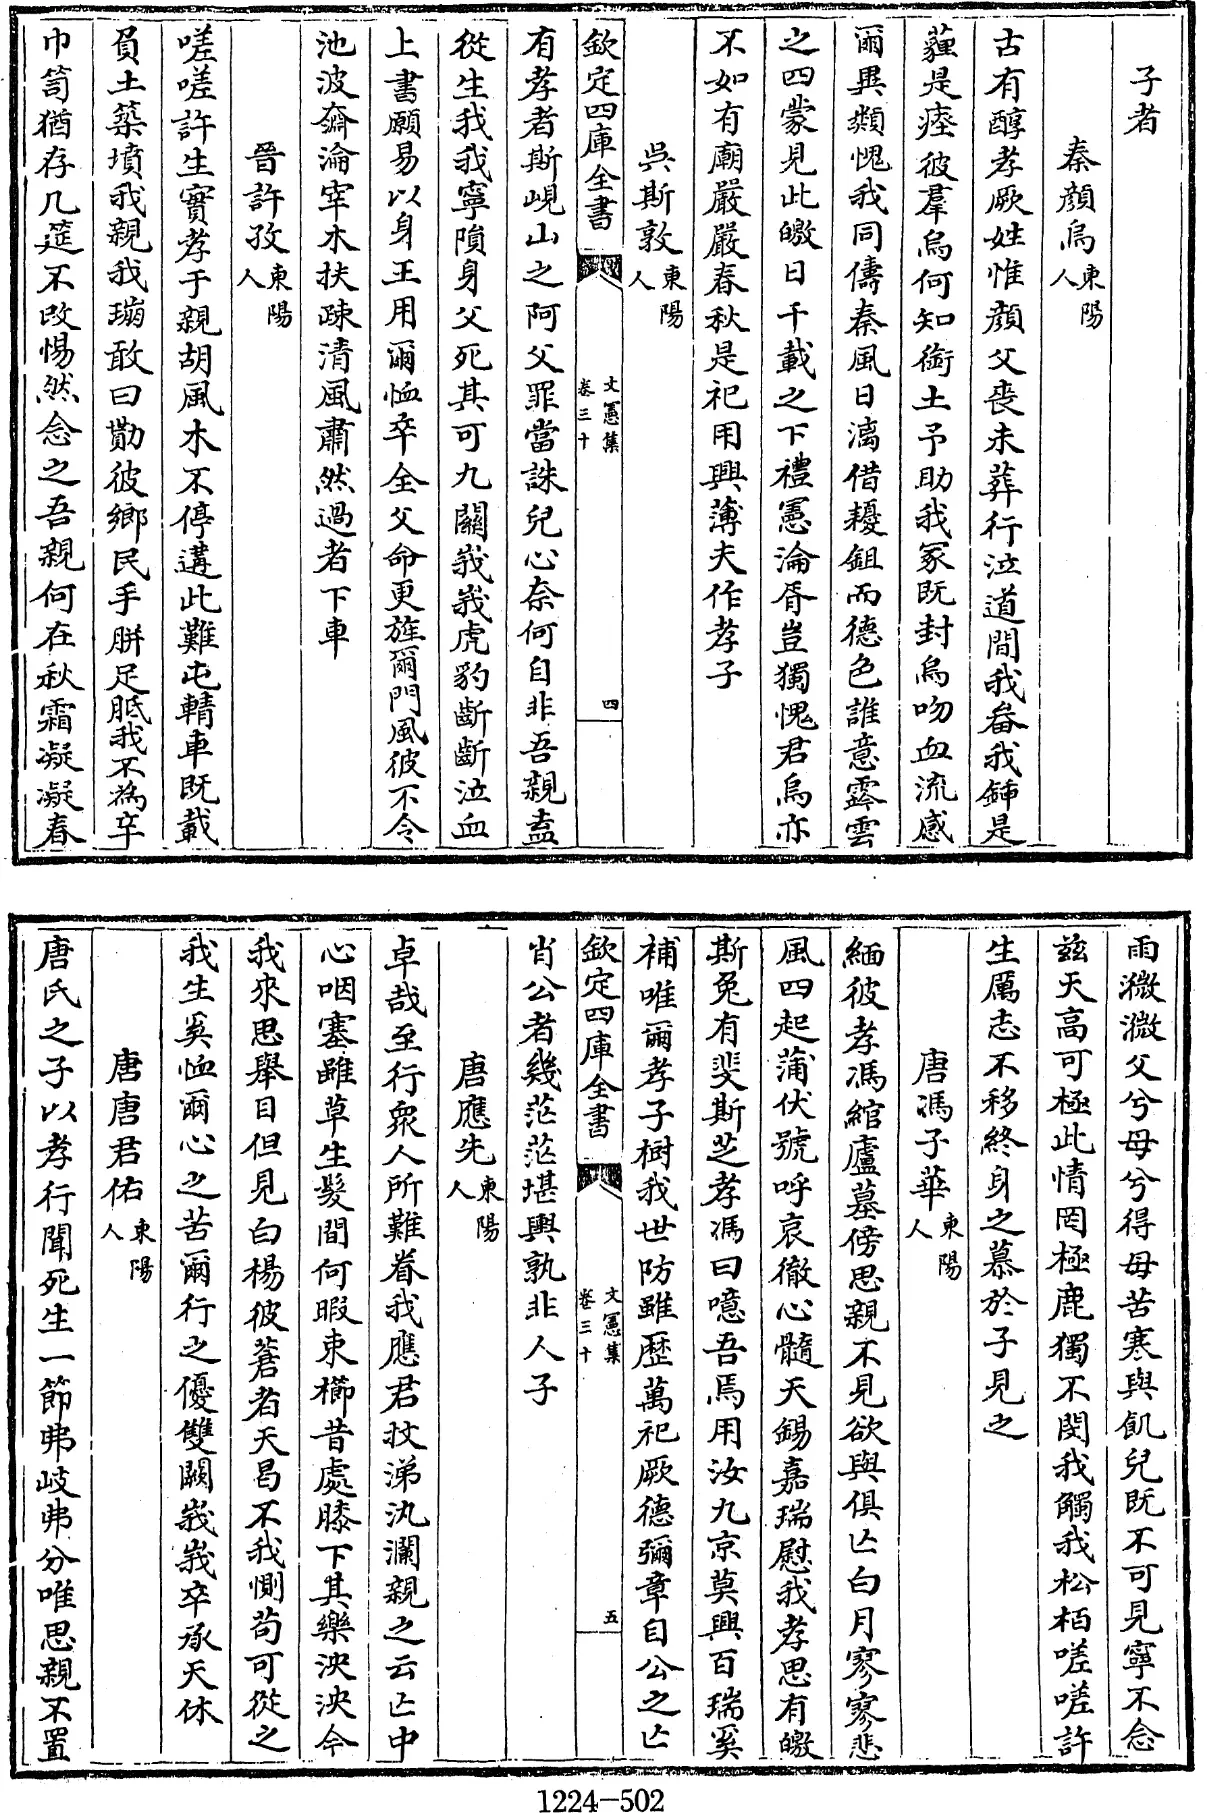 子者
秦顔烏東陽人
古有醇孝厥姓惟顔父喪未葬行泣道間我畚我鍤是
虆是瘞彼羣烏何知銜土予助我冢既封烏吻血流感
爾異類愧我同儔秦風日漓借耰鉏而德色誰意霿雲
之四蒙見此皦日千載之下禮憲淪胥豈獨愧君烏亦
不如有廟嚴嚴春秋是祀用興薄夫作孝子
吳斯敦東陽人
欽定四庫全書
文憲集
卷三十
四
有孝者斯峴山之阿父罪當誅兒心柰何自非吾親盍
從生我我寧隕身父死其可九關峩峩虎豹齗齗泣血
上書願易以身王用爾恤卒全父命更旌爾門風彼不令
池波奫淪宰木扶疎清風肅然過者下車
晉許孜東陽人
嗟嗟許生實孝于親胡風木不停遘此難屯輤車既載
負土築墳我親我塴敢曰勚彼鄉民手胼足胝我不為卒
巾笥猶存几筵不改惕然念之吾親何在秋霜凝凝春
雨㵟㵟父兮母兮得毋苦寒與飢兒既不可見寧不念
兹天高可極此情罔極鹿獨不閔我觸我松栢嗟嗟許
生厲志不移終身之慕於子見之
唐馮子華東陽人
緬彼孝馮綰廬墓傍思親不見欲與俱亡白月寥寥悲
風四起蒲伏號呼哀徹心髓天錫嘉瑞慰我孝思有皦
斯兔有斐斯芝孝馮曰噫吾焉用汝九京莫興百瑞奚
補唯爾孝子樹我世防雖歷萬祀厥德彌章自公之亡
欽定四庫全書
文憲集
卷三十
五
肖公者幾茫茫堪輿孰非人子
唐應先東陽人
卓哉至行衆人所難眷我應君抆涕汍瀾親之云亡中
心咽塞雖草生髮間何暇束櫛昔處膝下其樂泱泱今
我來思舉目但見白楊彼蒼者天曷不我惻茍可從之
我生奚恤爾心之苦爾行之優雙闕峩峩卒承天休
唐唐君佑東陽人
唐氏之子以孝行聞死生一節弗岐弗分唯思親不置
1224—502